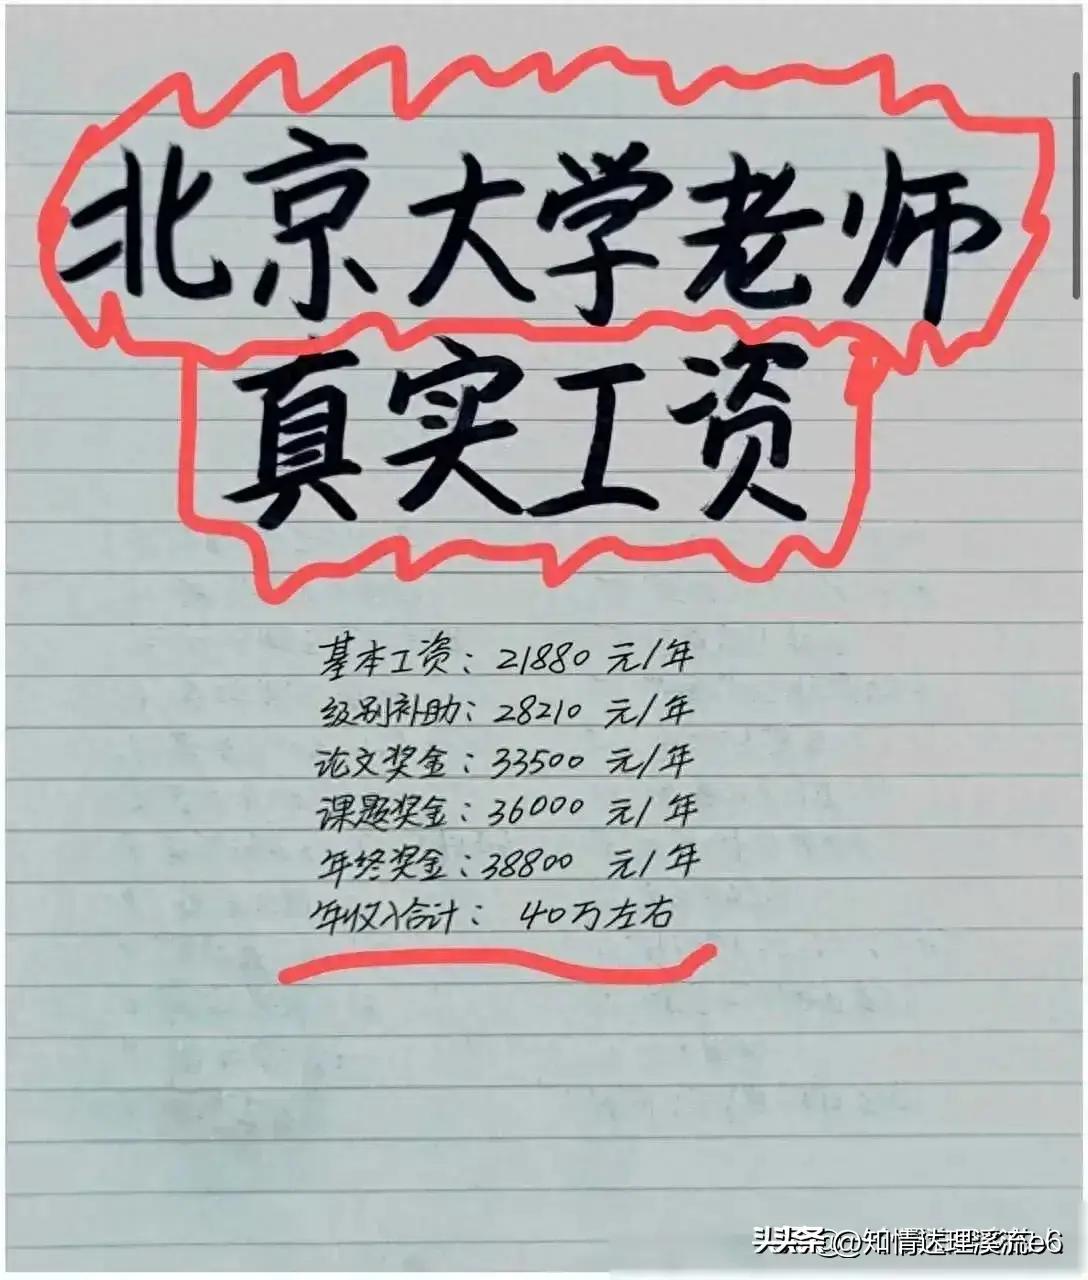 北京大学老师
真实工资
基本工资：21880 元/年
级别补助：28210 元/年
论文奖金：33500 元/年
课题奖金：36000 元/年
年终奖金：38800 元/年
年收入合计： 40万左右
头条@@知情达理溪流e6